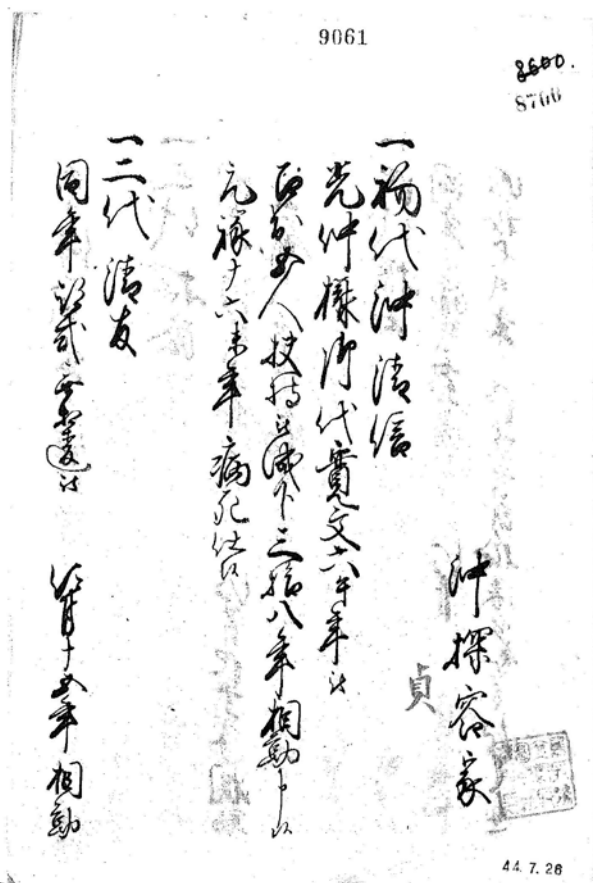 9061
8600.
8700
沖探容家
貞
一初代沖清信
光仲様御代寛文六午年被
召出五人扶持被成下三拾八年相勤申候
元禄十六未年病死仕候
一二代清友
同年跡式無相違被 十五年相勤
44.7.26